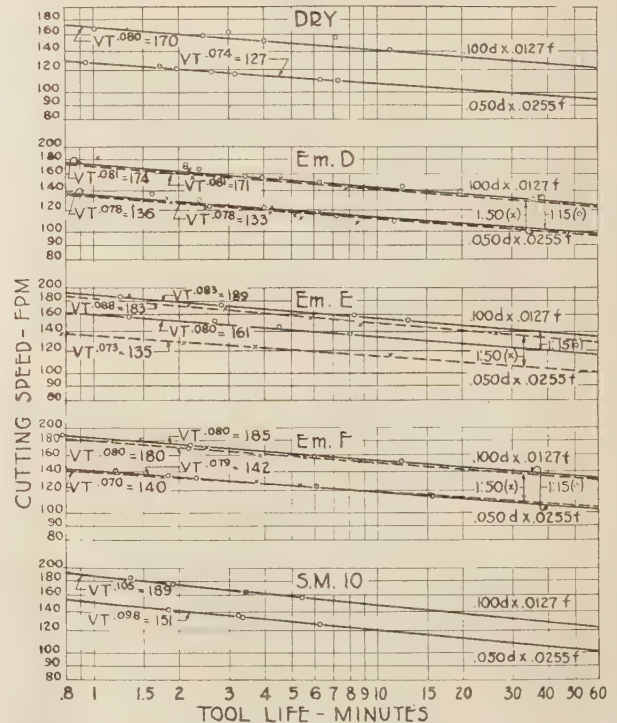 DRY
180
160
140
120
100
80
VT.080=170
VT.074=127
.100d x .0127f
.050d x .0255f
Em. D
200
180
160
140
120
100
90
80
VT.081=174
VT.081=171
VT.078=136
VT.078=133
.100d x .0127f
1:50(x)
1:15(o)
.050d x .0255f
Em. E
200
180
160
140
120
100
90
80
VT.083=189
VT.088=183
VT.080=161
VT.073=135
.100d x .0127f
1:50(x)
1:15(o)
.050d x .0255f
Em. F
200
180
160
140
120
100
90
80
VT.080=185
VT.080=180
VT.079=142
VT.070=140
.100d x .0127f
1:50(x)
1:15(o)
.050d x .0255f
S.M. 10
200
180
160
140
120
100
90
80
VT.105=189
VT.098=151
.100d x .0127f
.050d x .0255f
CUTTING SPEED-FPM
.8 1 1.5 2 3 4 5 6 7 8 9 10 15 20 30 40 50 60
TOOL LIFE - MINUTES